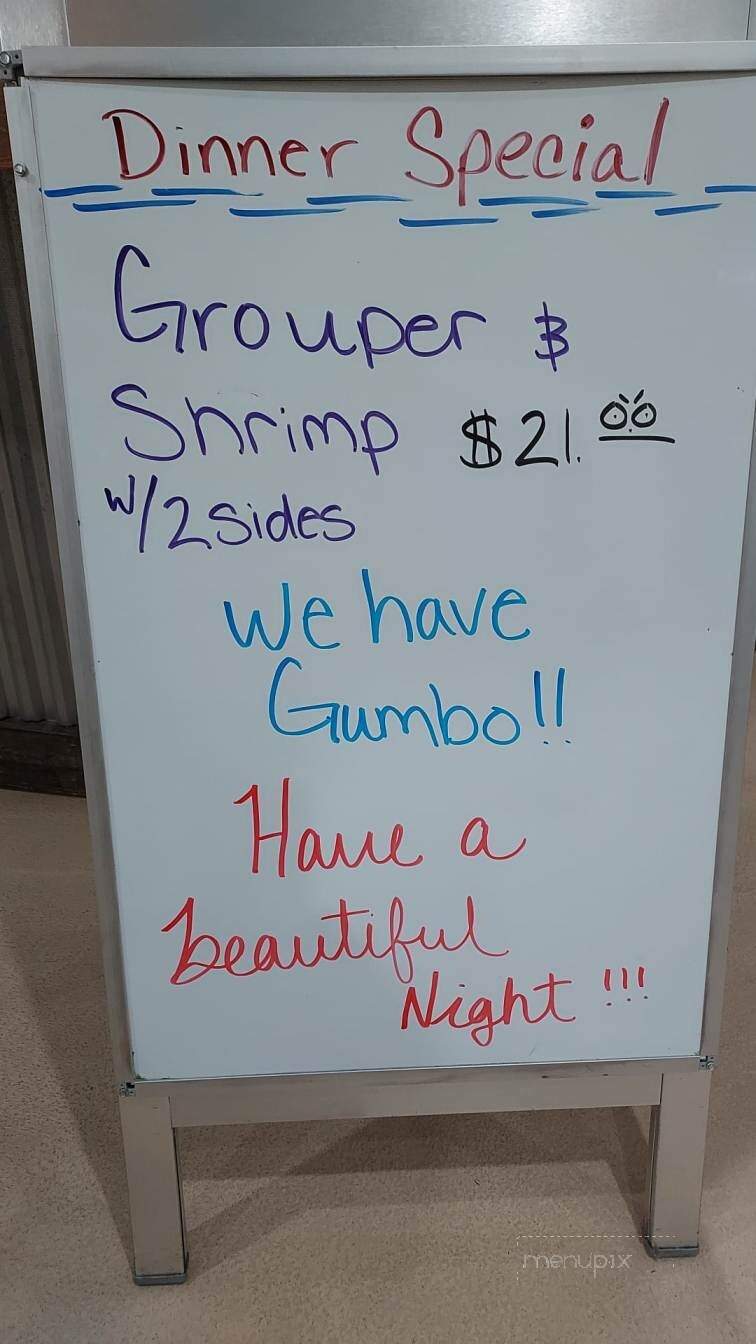 Dinner Special
Grouper &
Shrimp $21.00
w/2 sides
We have
Gumbo!!
Have a
beautiful
Night!!!
menupix